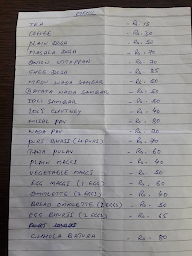 MENU
TEA - Rs. 15
COFFEE - Rs. 20
PLAIN DOSA - Rs. 50
MASALA DOSA - Rs. 70
ONION UTTAPPAM - Rs. 70
GHEE DOSA - Rs. 85
MEDU WADA SAMBAR - Rs. 50
BATATA WADA SAMBAR - Rs. 60
IDLI SAMBAR - Rs. 50
IDLI CHUTNEY - Rs. 40
MISAL PAV - Rs. 80
WADA PAV - Rs. 20
PURI BHAJI (4 PURIS) - Rs. 70
TAVA PULAV - Rs. 60
PLAIN MAGGI - Rs. 40
VEGETABLE MAGGI - Rs. 50
EGG MAGGI (2 EGGS) - Rs. 60
OMELETTE (2 EGGS) - Rs. 40
BREAD OMELETTE (2 EGGS) - Rs. 50
EGG BHURJI (2 EGGS) - Rs. 65
CHHOLA BATURA - Rs. 80